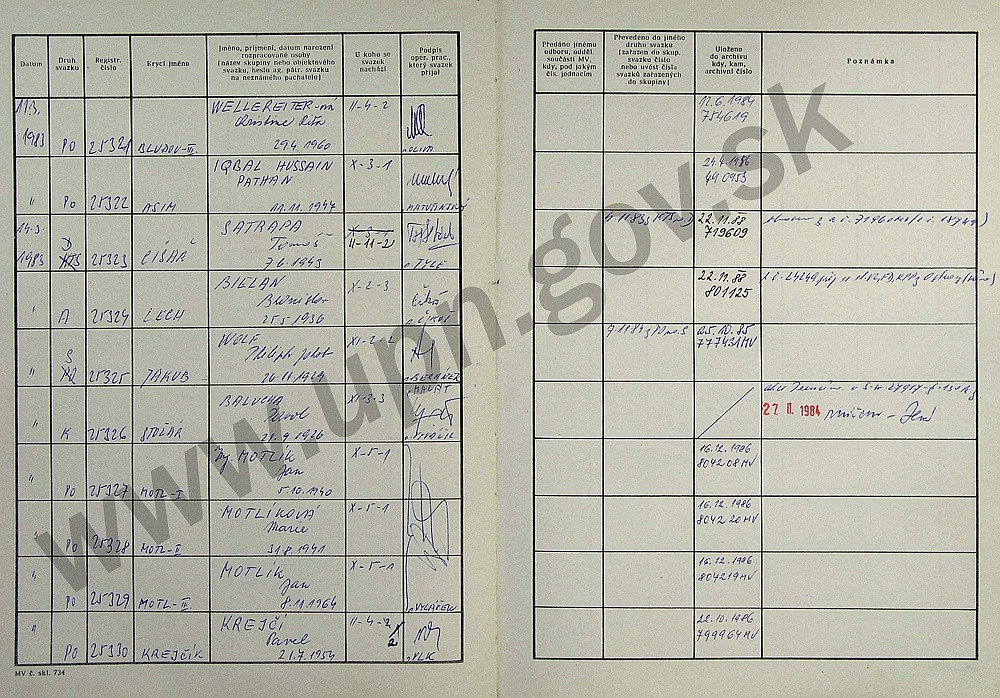 Datum
Druh svazku
Registr. číslo
Krycí jméno
Jméno, příjmení, datum narození
rozpracované osoby
(název skupiny nebo objektového
svazku, heslo ag. pátr. svazku
na neznámého pachatele)
U koho se
svazek
nachází
Podpis
oper. prac.,
který svazek
přijal
Předáno jinému
odboru, odděl.
součásti MV,
kdy, pod jakým
čís. jednacím
Převedeno do jiného
druhu svazku
(zařazen do skup.
svazku číslo
nebo uvést čísla
svazků zařazených
do skupiny)
Uloženo
do archivu
kdy, kam,
archivní číslo
Poznámka
11.3. 1983 PO 25321 BLUDOV-III.
WELLEREITER-ová
Christine Rita
29.4. 1960
II-4-2
OLIVA
11.6.1984
754619
" PO 25322 ASIM
IQBAL HUSSAIN
PATHAN
11.11.1947
X-3-1
24.4.1986
490953
14.3. 1983 D 25323 CÍSAŘ
SATRAPA
Tomáš
7.6.1943
X-3-1
II-11-2
TYLE
22.11.88
719609
" A 25324 LECH
BIELAN
Bronislav
25.5.1936
X-2-3
22.11.88
801125
S
" 25325 JAKUB
WOLF
26.11.1929
XI-2-2
BERKNER
25.10.85
777431MV
" K 25326 STOŽÁR
BALUCHA
Karol
21.9.1926
XI-3-3
27. II. 1984
" PO 25327 MOTL-I
Ing. MOTLÍK
Jan
5.10.1940
X-5-1
16.12.1986
804208MV
" PO 25328 MOTL-II
MOTLÍKOVÁ
Marie
31.8.1941
X-5-1
16.12.1986
804220MV
" PO 25329 MOTL-III
MOTLÍK
Jan
8.11.1964
X-5-1
16.12.1986
804219MV
" PO 25330 KREJČÍK
KREJČÍ
Pavel
21.7.1954
II-4-2
VLK
22.10.1986
799964MV
MV č. skl. 734
www.upn.gov.sk